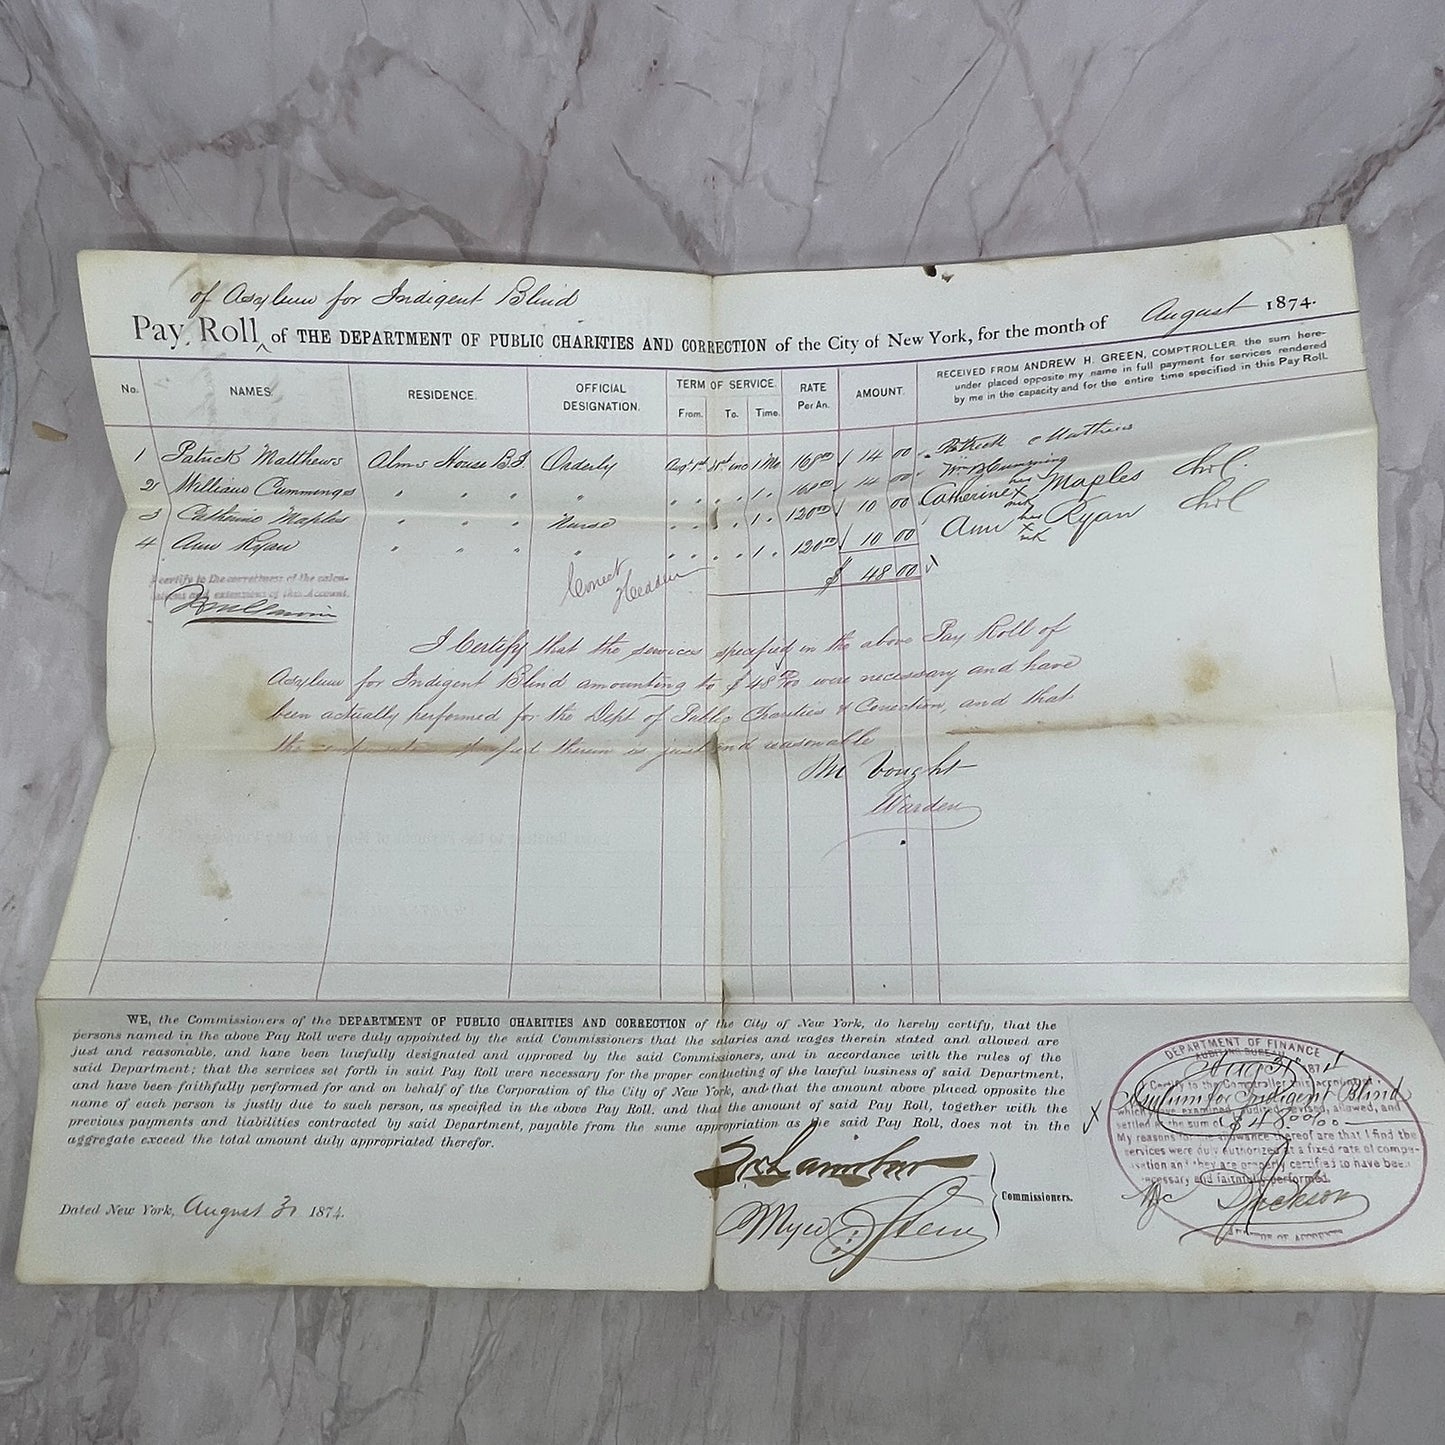 of Asylum for Indigent Blind
Pay Roll ^ of THE DEPARTMENT OF PUBLIC CHARITIES AND CORRECTION of the City of New York, for the month of August 1874.
No. NAMES. RESIDENCE. OFFICIAL DESIGNATION. TERM OF SERVICE. From. To. Time. RATE Per An. AMOUNT.
RECEIVED FROM ANDREW H. GREEN, COMPTROLLER the sum here-
under placed opposite my name in full payment for services rendered
by me in the capacity and for the entire time specified in this Pay Roll.
1 Patrick Matthews Alms House B.I. Orderly Augt 1st 31st inc 1 Mo 168 00 14 00 Patrick Matthews
2 William Cummings " " " " " " " 1 " 168 00 14 00 Wm Cumming
3 Catherine Maples " " " Nurse " " " " 1 " 120 00 10 00 Catherine her x mk Maples
4 Ann Ryan " " " " " " " " 1 " 120 00 10 00 Ann her x mk Ryan
$ 48 00
I certify to the correctness of the calcu-
lations and extensions of this Account.
Correct
I Certify that the services specified in the above Pay Roll of
Asylum for Indigent Blind amounting to $48 00/100 were necessary and have
been actually performed for the Dept of Public Charities & Correction, and that
the specified therein is just and reasonable
Vought
Warden
WE, the Commissioners of the DEPARTMENT OF PUBLIC CHARITIES AND CORRECTION of the City of New York, do hereby certify, that the
persons named in the above Pay Roll were duly appointed by the said Commissioners that the salaries and wages therein stated and allowed are
just and reasonable, and have been lawfully designated and approved by the said Commissioners, and in accordance with the rules of the
said Department; that the services set forth in said Pay Roll were necessary for the proper conducting of the lawful business of said Department,
and have been faithfully performed for and on behalf of the Corporation of the City of New York, and that the amount above placed opposite the
name of each person is justly due to such person, as specified in the above Pay Roll. and that the amount of said Pay Roll, together with the
previous payments and liabilities contracted by said Department, payable from the same appropriation as the said Pay Roll, does not in the
aggregate exceed the total amount duly appropriated therefor.
Myer Stern
Commissioners.
Dated New York, August 31 1874.
DEPARTMENT OF FINANCE
AUDITING BUREAU
Aug 31 1874
I Certify to the Comptroller this account of
Asylum for Indigent Blind
which I have examined, audited, revised, allowed, and
settled at the sum of $48 00/100
My reasons for the allowance thereof are that I find the
services were duly authorized at a fixed rate of compen-
sation and they are properly certified to have been
necessary and faithfully performed.
Jackson
AUDITOR OF ACCOUNTS